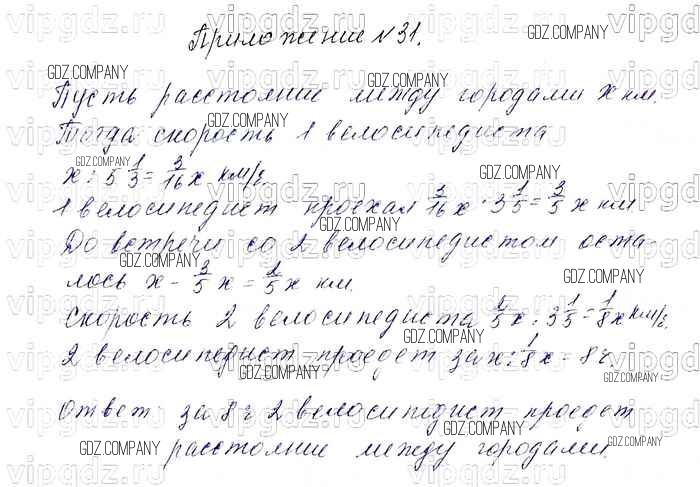 Приложение №31.
Пусть расстояние между городами x км.
Тогда скорость 1 велосипедиста
x : 5 1/3 = 3/16 x км/ч.
1 велосипедист проехал 3/16 x · 3 1/5 = 3/5 x км
До встречи со 2 велосипедистом оста-
лось x - 3/5 x = 2/5 x км.
Скорость 2 велосипедиста 2/5 x : 3 1/5 = 1/8 x км/ч.
2 велосипедист проедет за x : 1/8 x = 8 ч.
Ответ за 8 ч 2 велосипедист проедет
расстояние между городами.
GDZ.COMPANY
vipgdz.ru